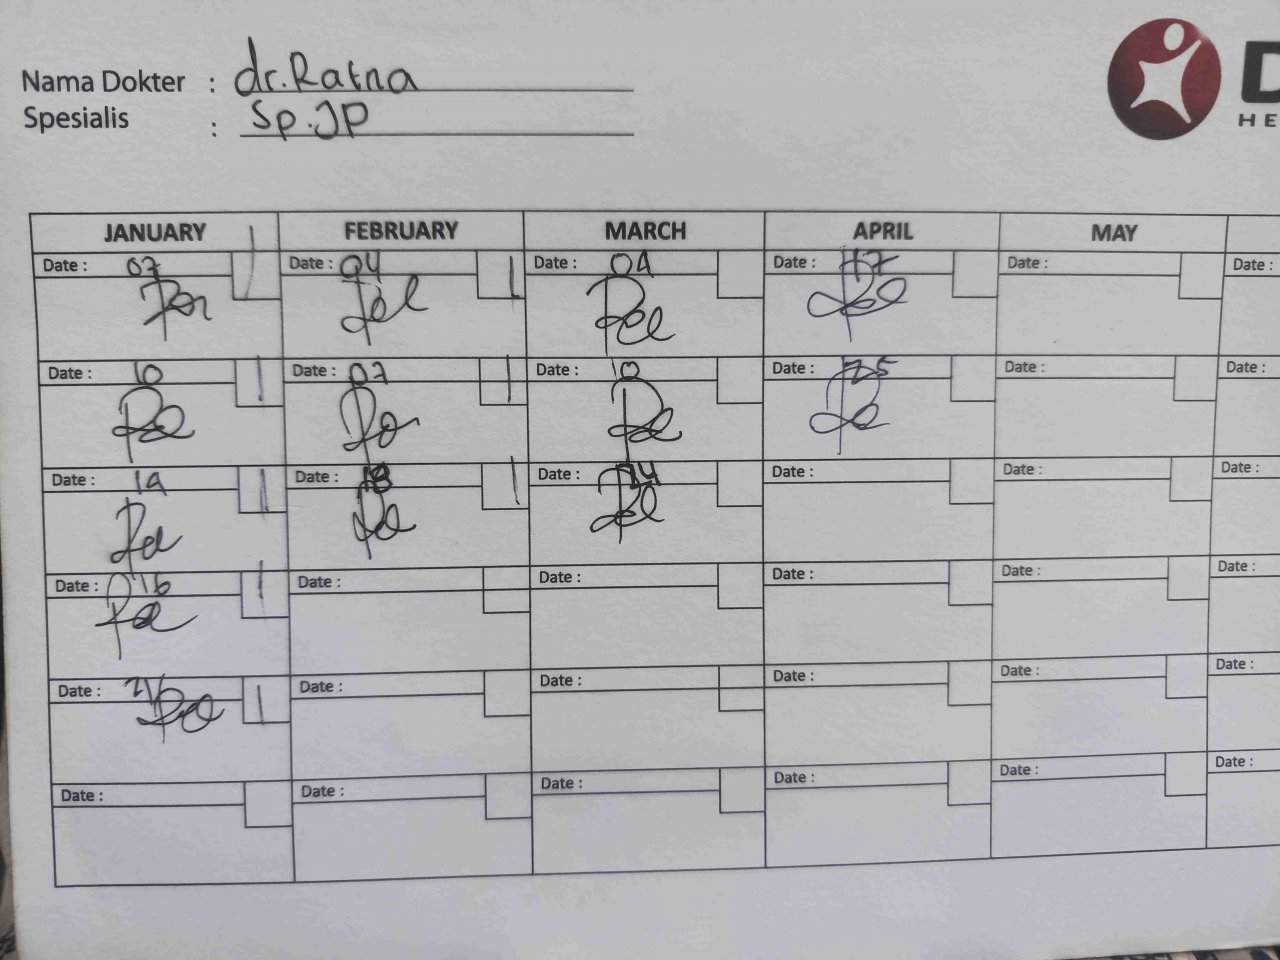 Nama Dokter : dr. Ratna
Spesialis : Sp.JP
D
HE
JANUARY FEBRUARY MARCH APRIL MAY
Date : 07 Date : 04 Date : 04 Date : 17 Date : Date :
Date : 10 Date : 07 Date : 10 Date : 25 Date : Date :
Date : 14 Date : 18 Date : Date : Date : Date :
Date : 16 Date : Date : Date : Date : Date :
Date : 21 Date : Date : Date : Date : Date :
Date : Date : Date : Date : Date : Date :